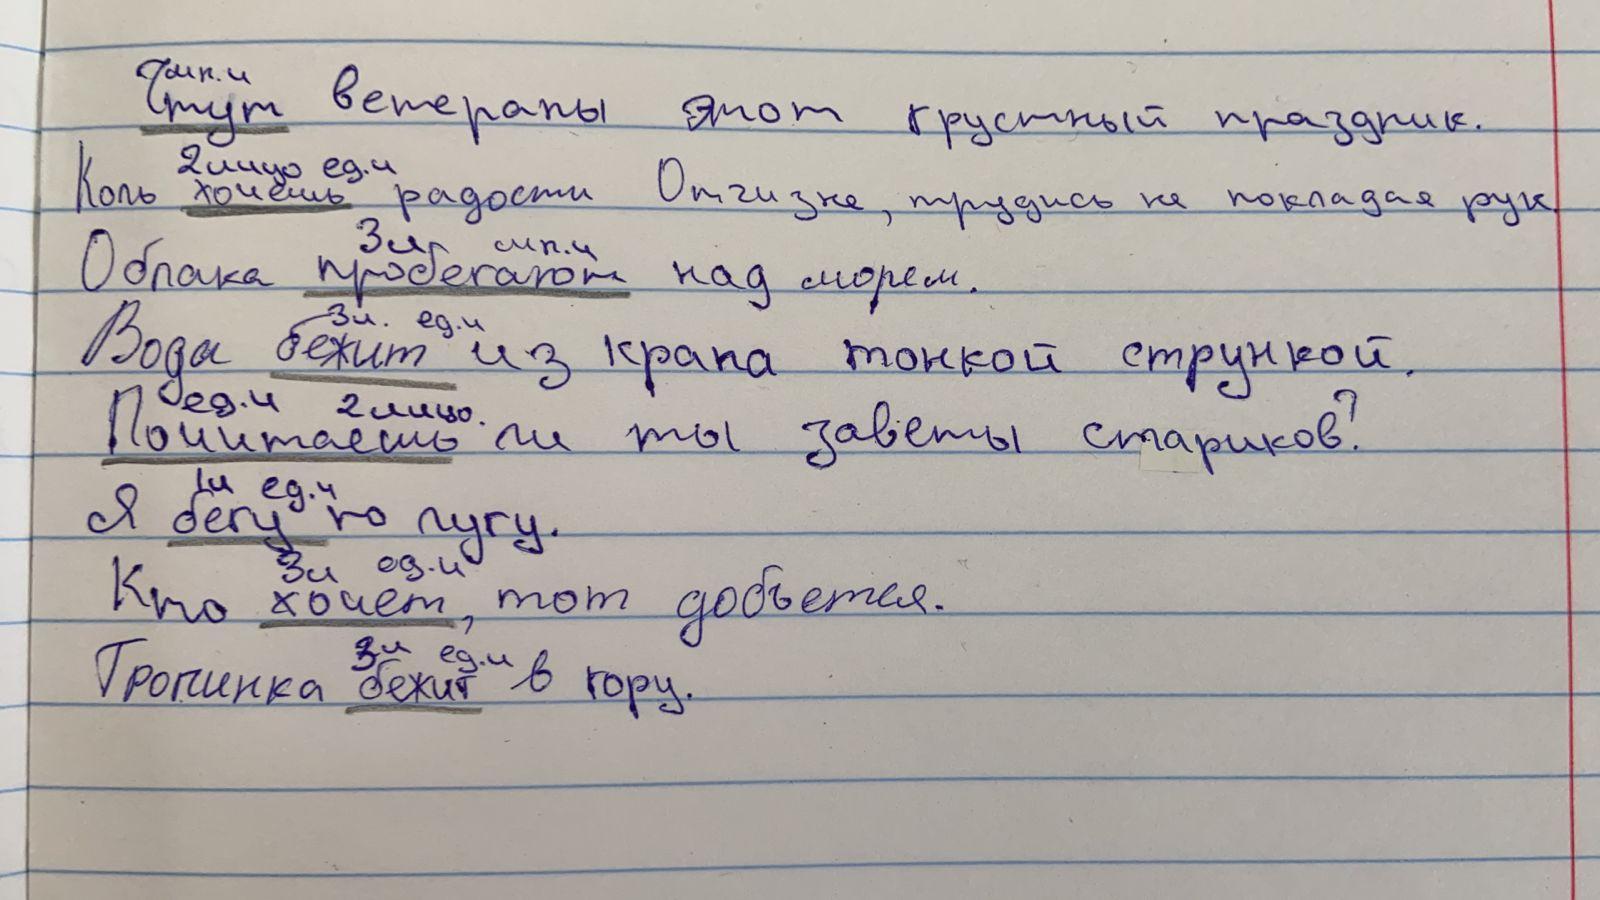 мн.ч
Чтут ветераны этот грустный праздник.
2 лицо ед.ч
Коль хочешь радости Отчизне, трудись не покладая рук.
3л. мн.ч
Облака пробегают над морем.
3л. ед.ч
Вода бежит из крана тонкой стрункой.
ед.ч 2 лицо.
Почитаешь ли ты заветы стариков?
1л ед.ч
Я бегу по лугу.
3л ед.ч
Кто хочет, тот добьется.
3л ед.ч
Тропинка бежит в гору.